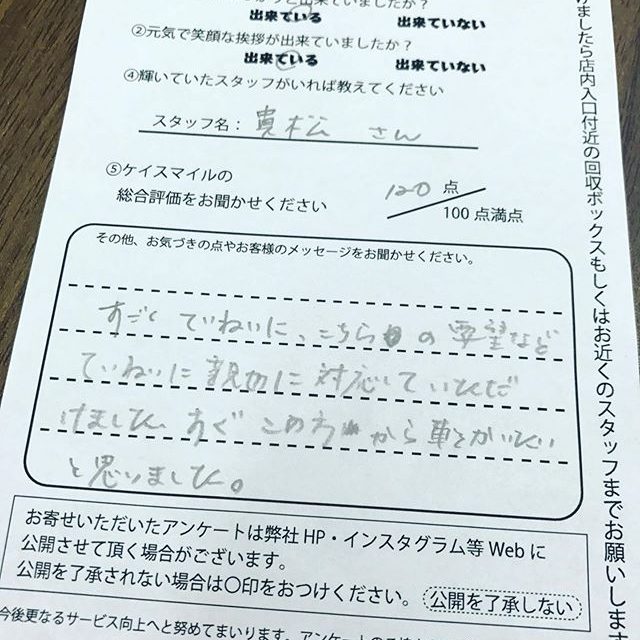 出来ていましたか？
出来ている　出来ていない
②元気で笑顔な挨拶が出来ていましたか？
出来ている　出来ていない
④輝いていたスタッフがいれば教えてください
スタッフ名： 貴松 さん
⑤ケイスマイルの
総合評価をお聞かせください
120 点
100 点満点
その他、お気づきの点やお客様のメッセージをお聞かせください。
すごく ていねいに、こちらの要望など
ていねいに 親切に 対応して いただ
けました。すぐ この方から 車をかいたい
と思いました。
お寄せいただいたアンケートは弊社 HP・インスタグラム等 Web に
公開させて頂く場合がございます。
公開を了承されない場合は〇印をおつけください。 公開を了承しない
今後更なるサービス向上へと努めてまいります。アンケートの
けましたら店内入口付近の回収ボックスもしくはお近くのスタッフまでお願いします